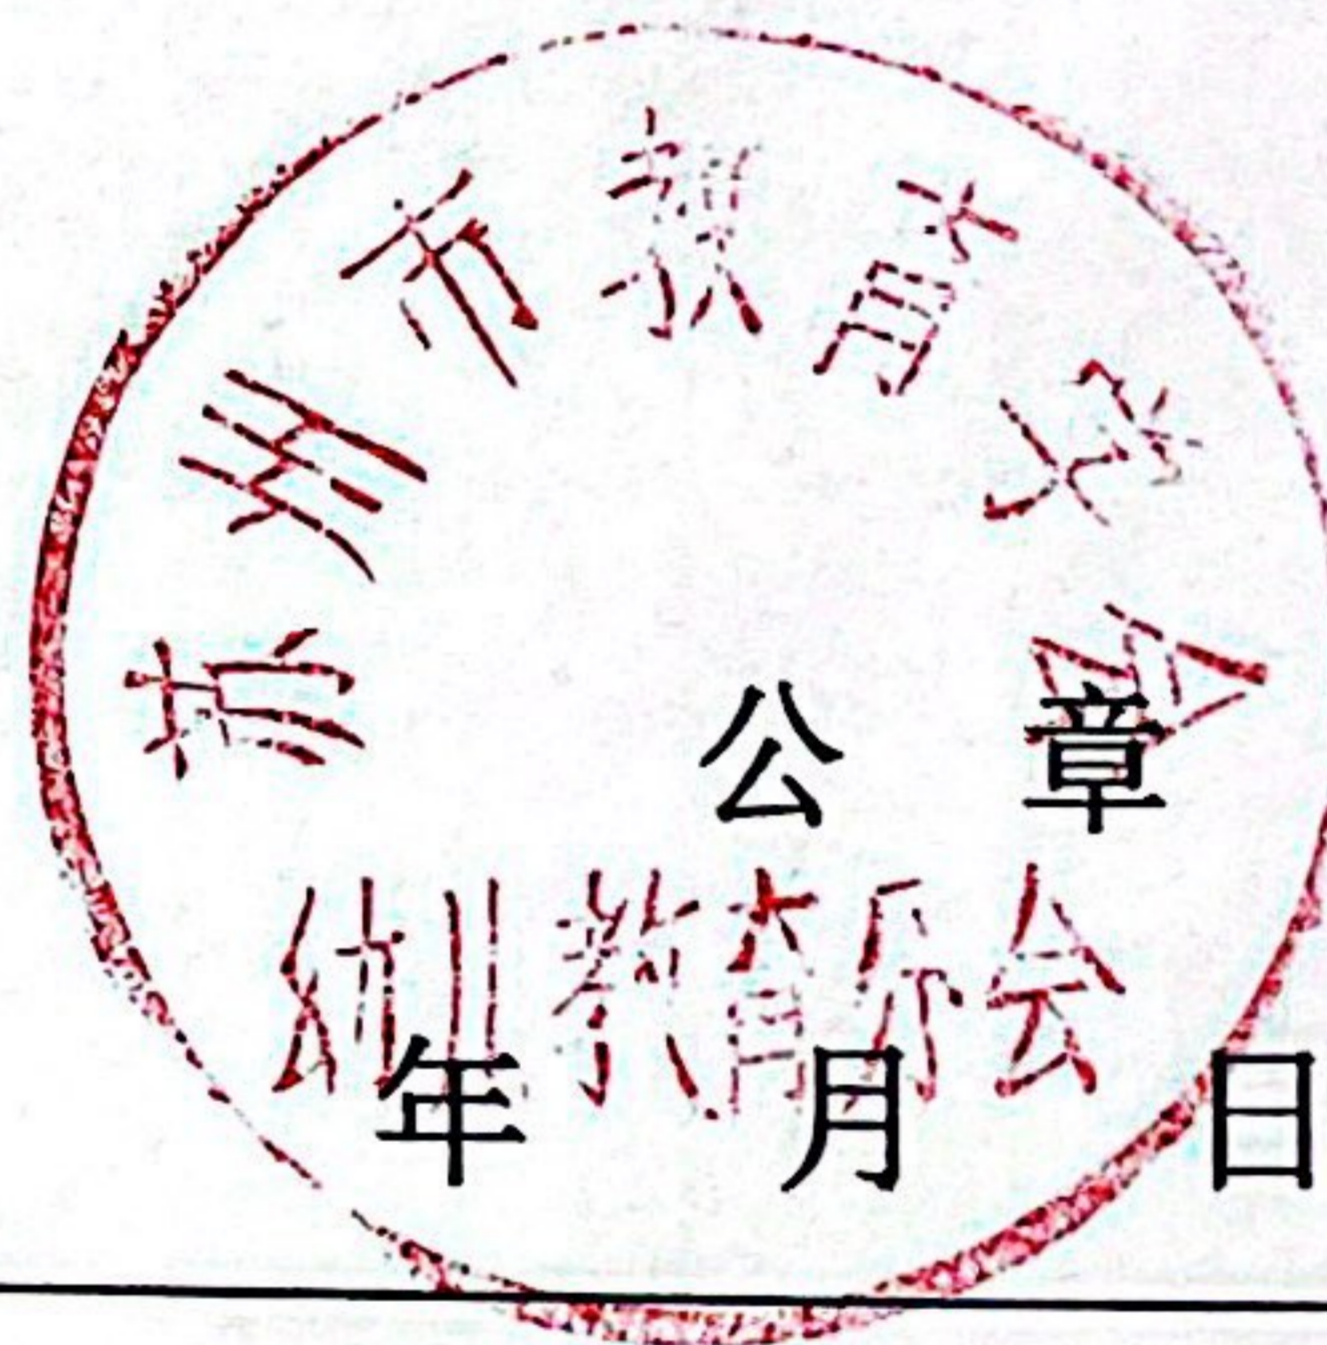 苏州市教育学会
公 章
幼儿教育 会
年 月 日